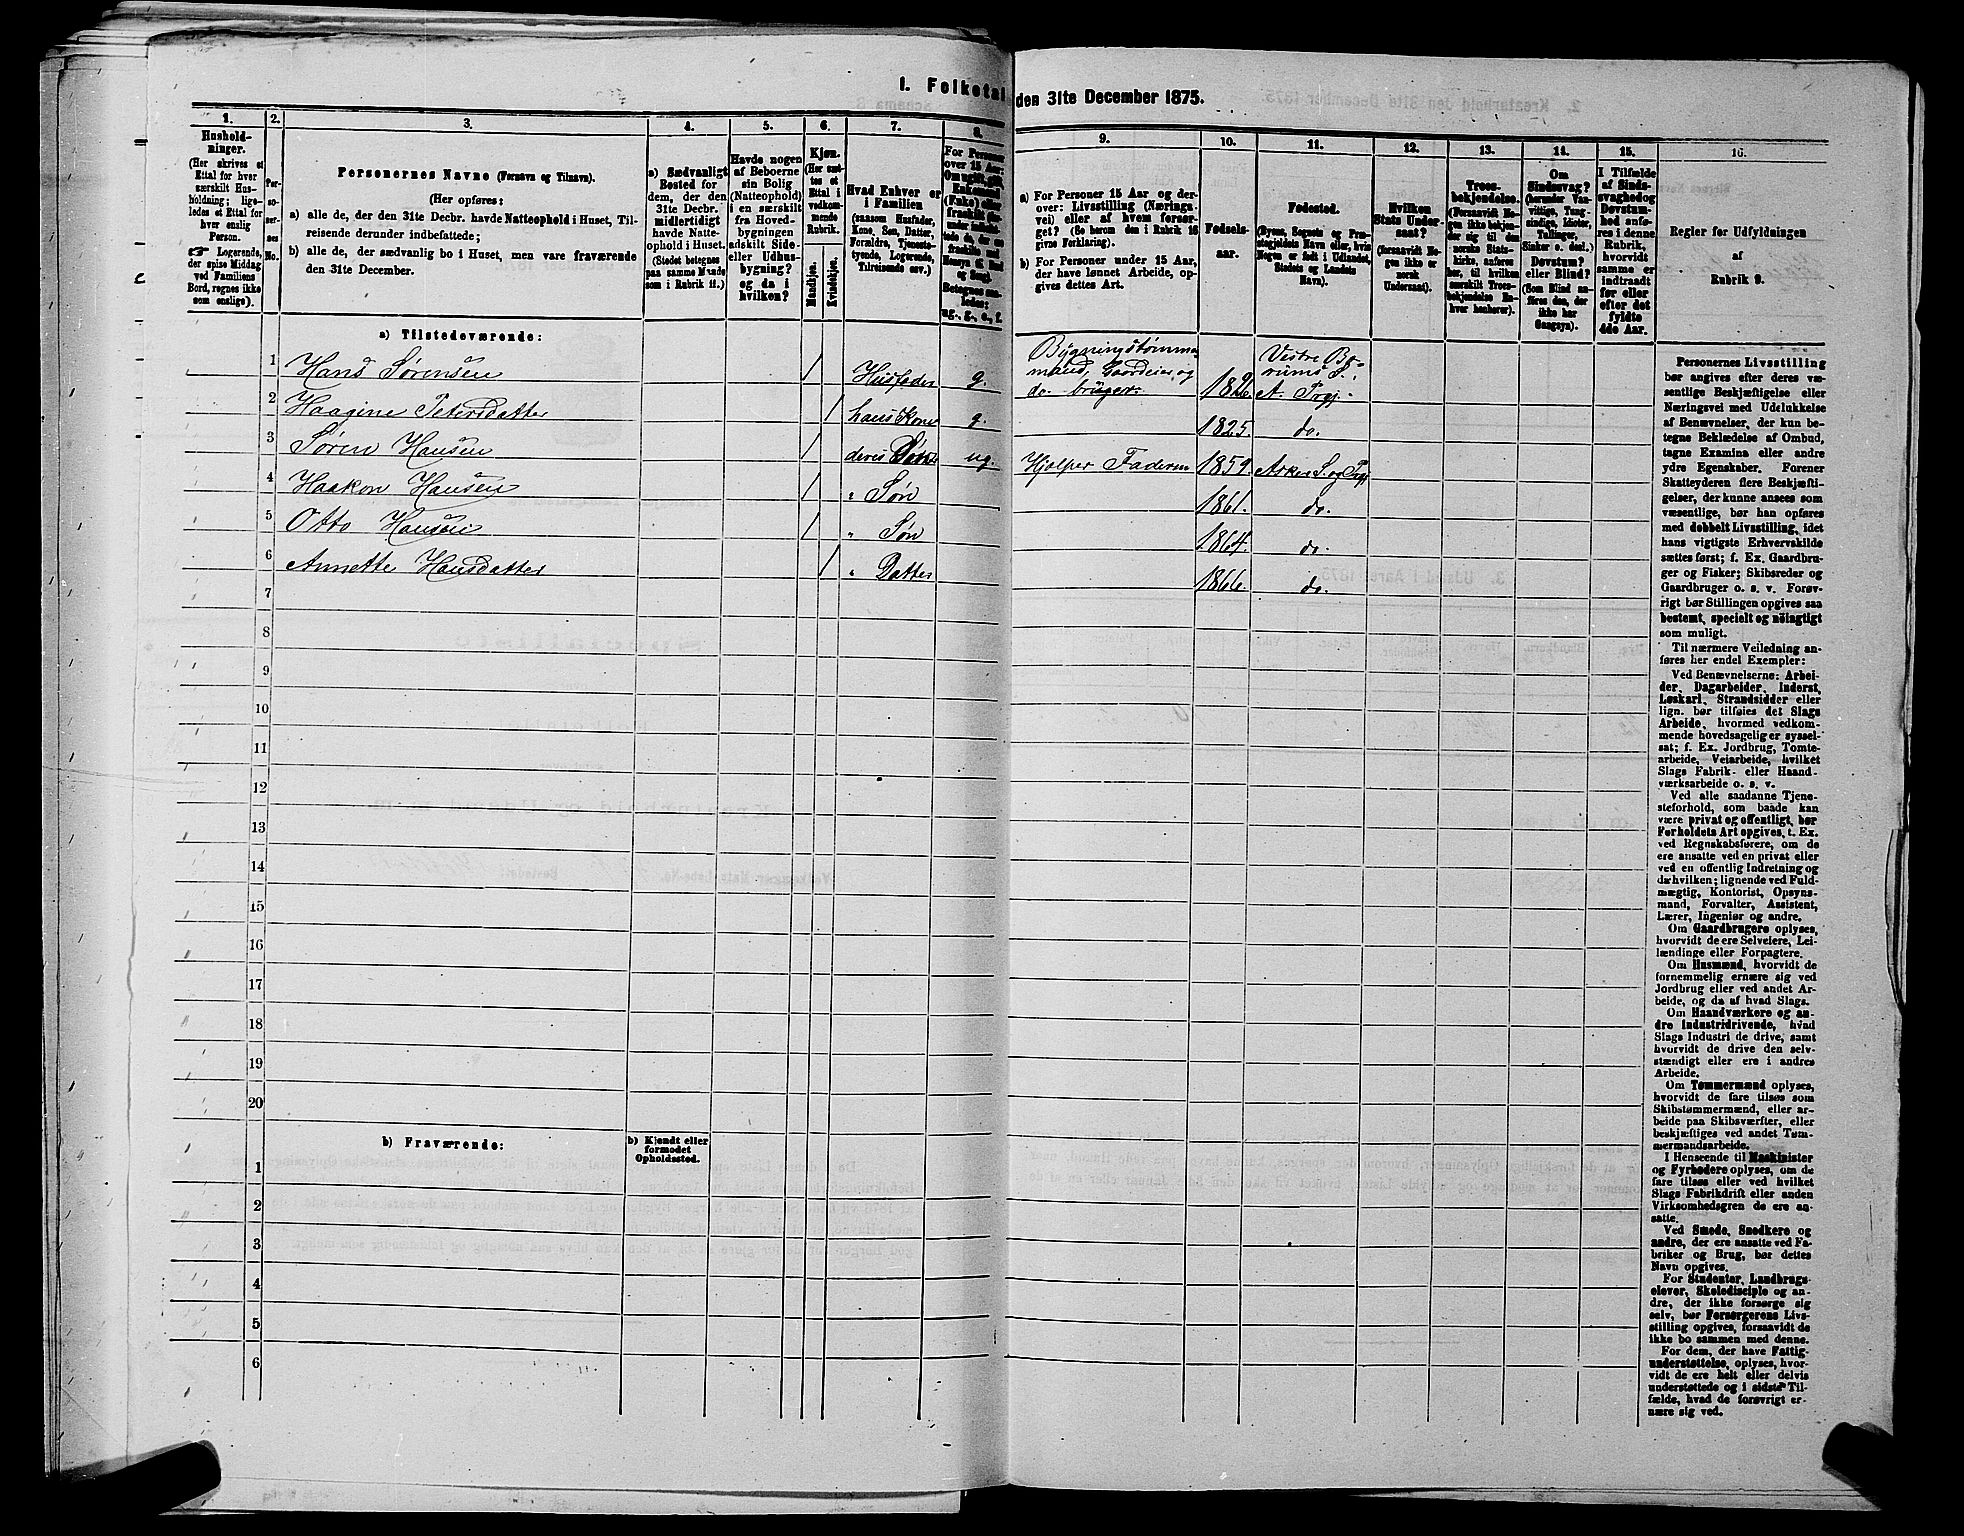 I. Folketal den 31te December 1875.
1.
Hushold-
ninger.
(Her skrives et
Ettal for hver
særskilt Hus-
holdning; lige-
ledes et Ettal for
hver enslig
Person.
☞ Logerende,
der spise Middag
ved Familiens
Bord, regnes ikke
som enslige).
2.
Per-
so-
ner-
nes
No.
3.
Personernes Navne (Fornavn og Tilnavn).
(Her opføres:
a) alle de, der den 31te Decbr. havde Natteophold i Huset, Til-
reisende derunder indbefattede;
b) alle de, der sædvanlig bo i Huset, men vare fraværende
den 31te December.
4.
a) Sædvanligt
Bosted for
dem, der den
31te Decbr.
midlertidigt
havde Natte-
ophold i Huset.
(Stedet betegnes
paa samme Maade
som i Rubrik 11.)
5.
Havde nogen
af Beboerne
sin Bolig
(Natteophold)
i en særskilt
fra Hoved-
bygningen
adskilt Side-
eller Udhus-
bygning?
og da i
hvilken?
6.
Kjøn.
(Her sæt-
tes et
Ettal i
vedkom-
mende
Rubrik.
Mandkjøn.
Kvindekjøn.
7.
Hvad Enhver er
i Familien
(saasom Husfader,
Kone, Søn, Datter,
Forældre, Tjeneste-
tyende, Logerende,
Tilreisende osv.)
8.
For Personer
over 15 Aar:
9.
a) For Personer 15 Aar og der-
over: Livsstilling (Nærings-
vei) eller af hvem forsør-
get? (Se herom den i Rubrik 16
givne Forklaring).
b) For Personer under 15 Aar,
der have lønnet Arbeide, op-
gives dettes Art.
10.
Fødsels-
aar.
11.
Fødested.
(Byens, Sognets og Præ-
stegjeldets Navn eller, hvis
Nogen er født i Udlandet,
Stedets og Landets
Navn).
12.
Hvilken
Stats Under-
saat?
(forsaavidt No-
gen ikke er
norsk
Undersaat).
13.
Troes-
bekjendelse.
(Forsaavidt No-
gen ikke bekjen-
der sig til den
norske Stats-
kirke, anføres
her, til hvilken
særskilt Troes-
bekjendelse En-
hver henhører).
14.
Om
Sindssvag?
(herunder Van-
vittige, Tung-
sindige, Idioter,
Tullinger,
Sinker o. desl.)
Døvstum?
eller Blind?
(Som Blind an-
føres den, der
ikke har
Gangsyn).
15.
I Tilfælde
af Sinds-
svaghed og
Døvstum-
hed anfø-
res i denne
Rubrik,
hvorvidt
samme er
indtraadt
før eller
efter det
fyldte
4de Aar.
16.
Regler for Udfyldningen
af
Rubrik 9.
a) Tilstedeværende:
1 Hans Sørensen 1 Husfader g. Bygningstømmermand, Gaardeier og do. bruger 1826. Vestre Bærums S. A. Prgj.
2 Haagine Petersdatter 1 hans Kone g. 1825. do.
3 Søren Hansen 1 deres Søn ug. Hjælper Faderen 1859. Asker S. og Prgj.
4 Haakon Hansen 1 " Søn 1861. do.
5 Otto Hansen 1 " Søn 1864. do.
6 Annette Hansdatter 1 " Datter 1866. do.
7
8
9
10
11
12
13
14
15
16
17
18
19
20
b) Fraværende:
b) Kjendt eller
formodet
Opholdssted.
1
2
3
4
5
6
Personernes Livsstilling
bør angives efter deres væ-
sentlige Beskjæftigelse eller
Næringsvei med Udelukkelse
af Benævnelser, der kun be-
tegne Beklædelse af Ombud,
tagne Examina eller andre
ydre Egenskaber. Forener
Skatteyderen flere Beskjæfti-
gelser, der kunne ansees som
væsentlige, bør han opføres
med dobbelt Livsstilling, idet
hans vigtigste Erhvervskilde
sættes først; f. Ex. Gaardbru-
ger og Fisker; Skibsreder og
Gaardbruger o. s. v. Forøv-
rigt bør Stillingen opgives saa
bestemt, specielt og nöiagtigt
som muligt.
Til nærmere Veiledning an-
føres her endel Exempler:
Ved Benævnelserne: Arbei-
der, Dagarbeider, Inderst,
Løskarl, Strandsidder eller
lign. bør tilføies det Slags
Arbeide, hvormed vedkom-
mende hovedsagelig er syssel-
sat; f. Ex. Jordbrug, Tomte-
arbeide, Veiarbeide, hvilket
Slags Fabrik- eller Haand-
værksarbeide o. s. v.
Ved alle saadanne Tjene-
steforhold, som baade kan
være privat og offentligt, bør
Forholdets Art opgives, t. Ex.
ved Regnskabsførere, om de
ere ansatte ved en privat eller
ved en offentlig Indretning og
da hvilken; lignende ved Fuld-
mægtig, Kontorist, Opsyns-
mand, Forvalter, Assistent,
Lærer, Ingeniør og andre.
Om Gaardbrugere oplyses,
hvorvidt de ere Selveiere, Lei-
lændinge eller Forpagtere.
Om Husmænd, hvorvidt de
fornemmelig ernære sig ved
Jordbrug eller ved andet Ar-
beide, og da af hvad Slags.
Om Haandværkere og an-
dre industridrivende, hvad
Slags Industri de drive, samt
hvorvidt de drive den selv-
stændigt eller ere i andres
Arbeide.
Om Tømmermænd oplyses,
hvorvidt de fare tilsøs som
Skibstømmermænd, eller ar-
beide paa Skibsværfter, eller
beskjæftiges ved andet Tøm-
mermandsarbeide.
I Henseende til Maskinister
og Fyrbødere oplyses, om de
fare tilsøs eller ved hvilket
Slags Fabrikdrift eller anden
Virksomhedsgren de ere an-
satte.
Ved Smede, Snedkere og
andre, der ere ansatte ved Fa-
briker og Brug, bør dettes
Navn opgives.
For Studenter, Landbrugs-
elever, Skoledisciple og an-
dre, der ikke forsørge sig
selv, bør Forsørgerens Livs-
stilling opgives, forsaavidt de
ikke bo sammen med denne.
For dem, der have Fattig-
understøttelse, oplyses, hvor-
vidt de ere helt eller delvis
understøttede og i sidste Til-
fælde, hvad de forøvrigt er-
nære sig ved.